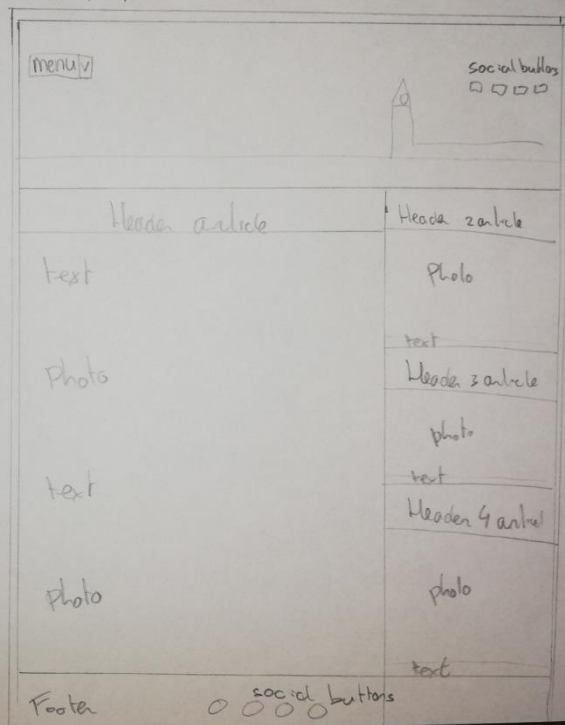 menu v
social buttons
Header article
text
photo
text
photo
Header 2 article
photo
text
Header 3 article
photo
text
Header 4 articel
photo
text
Footer
social buttons